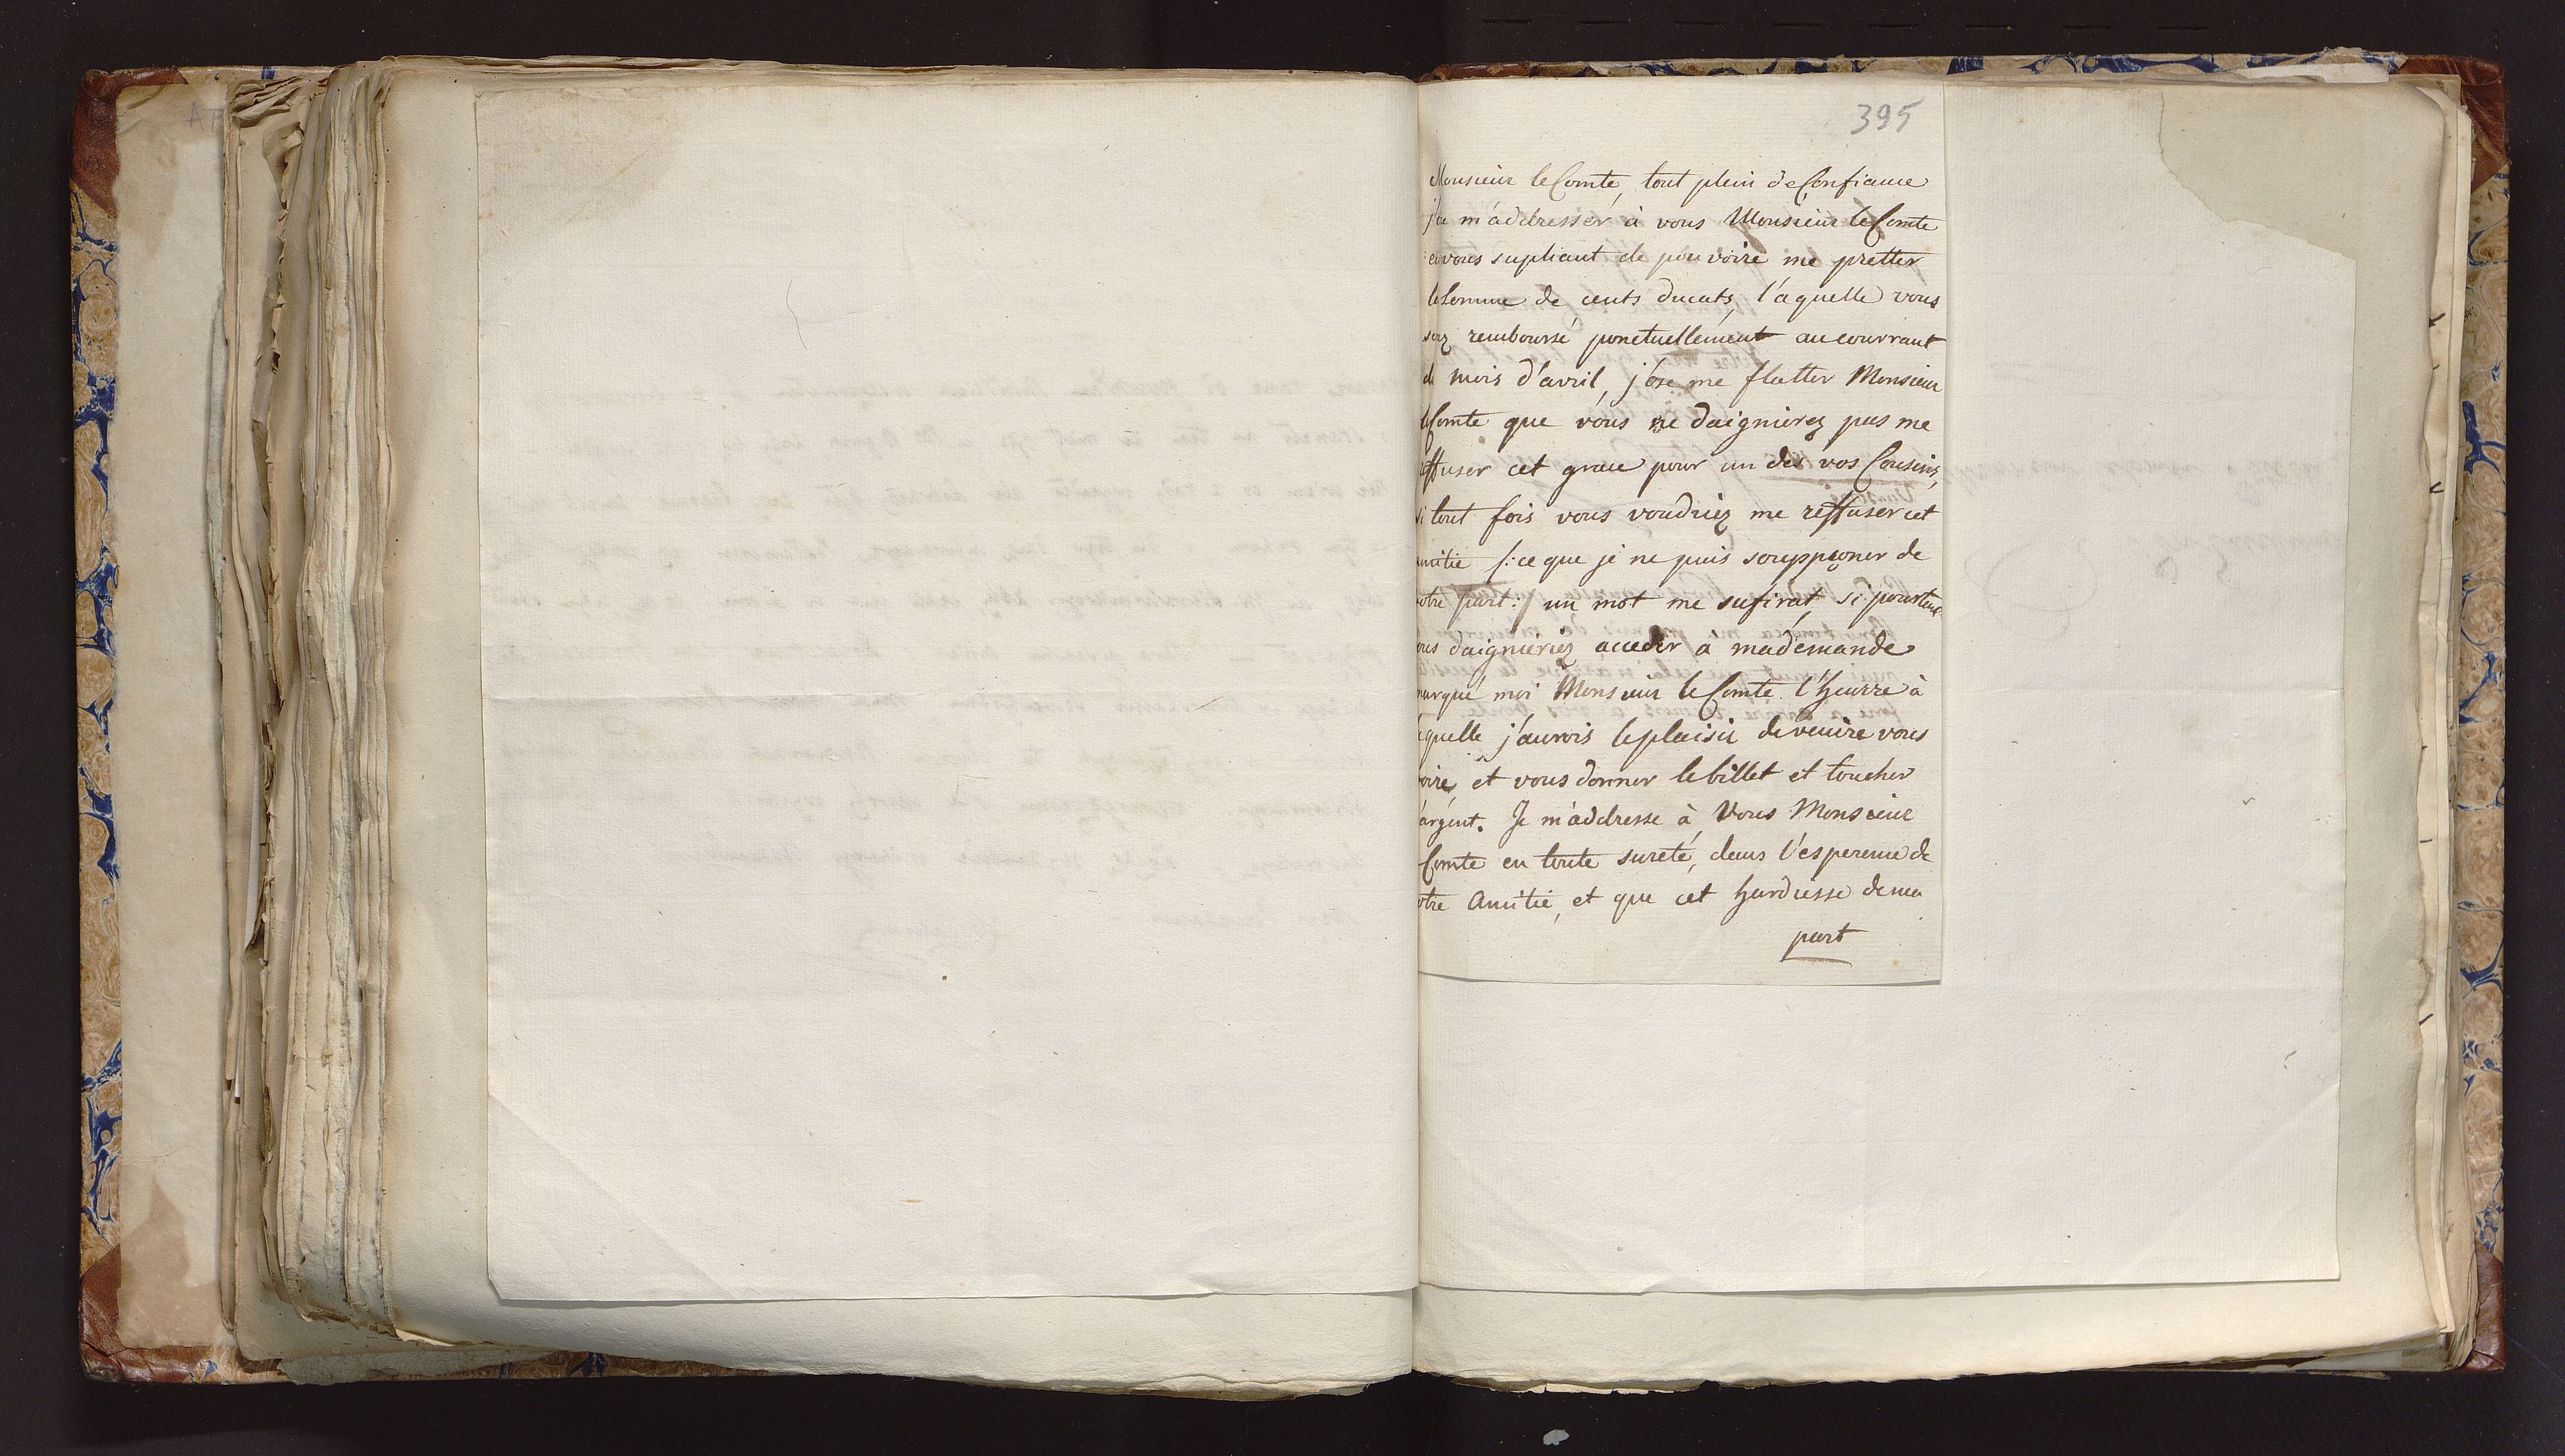 395
Monsieur le Comte, tout plein de Confiance
m'addresser à vous Monsieur le Comte
en vous supliant de pouvoire me pretter
la Somme de cents ducats, l'aquelle vous
serez remboursé ponctuellement au courrant
de mois d'avril, j'ose me flatter Monsieur
le Comte que vous ne daignierez pas me
reffuser cet grace pour un des vos Cousins,
si tout fois vous voudriez me reffuser cet
amitie /: ce que je ne puis souppçoner de
votre part :/ un mot me sufirat, si pourtant
vous daignieriez acceder à ma demande
marqué moi Monsieur le Comte l'heurre à
laquelle j'aurois le plaisir de venire vous
voire, et vous donner le billet et toucher
l'argent. Je m'addresse à Vous Monsieur
Comte en toute sureté, dans l'esperence de
votre Amitie, et que cet hardiesse de ma
part